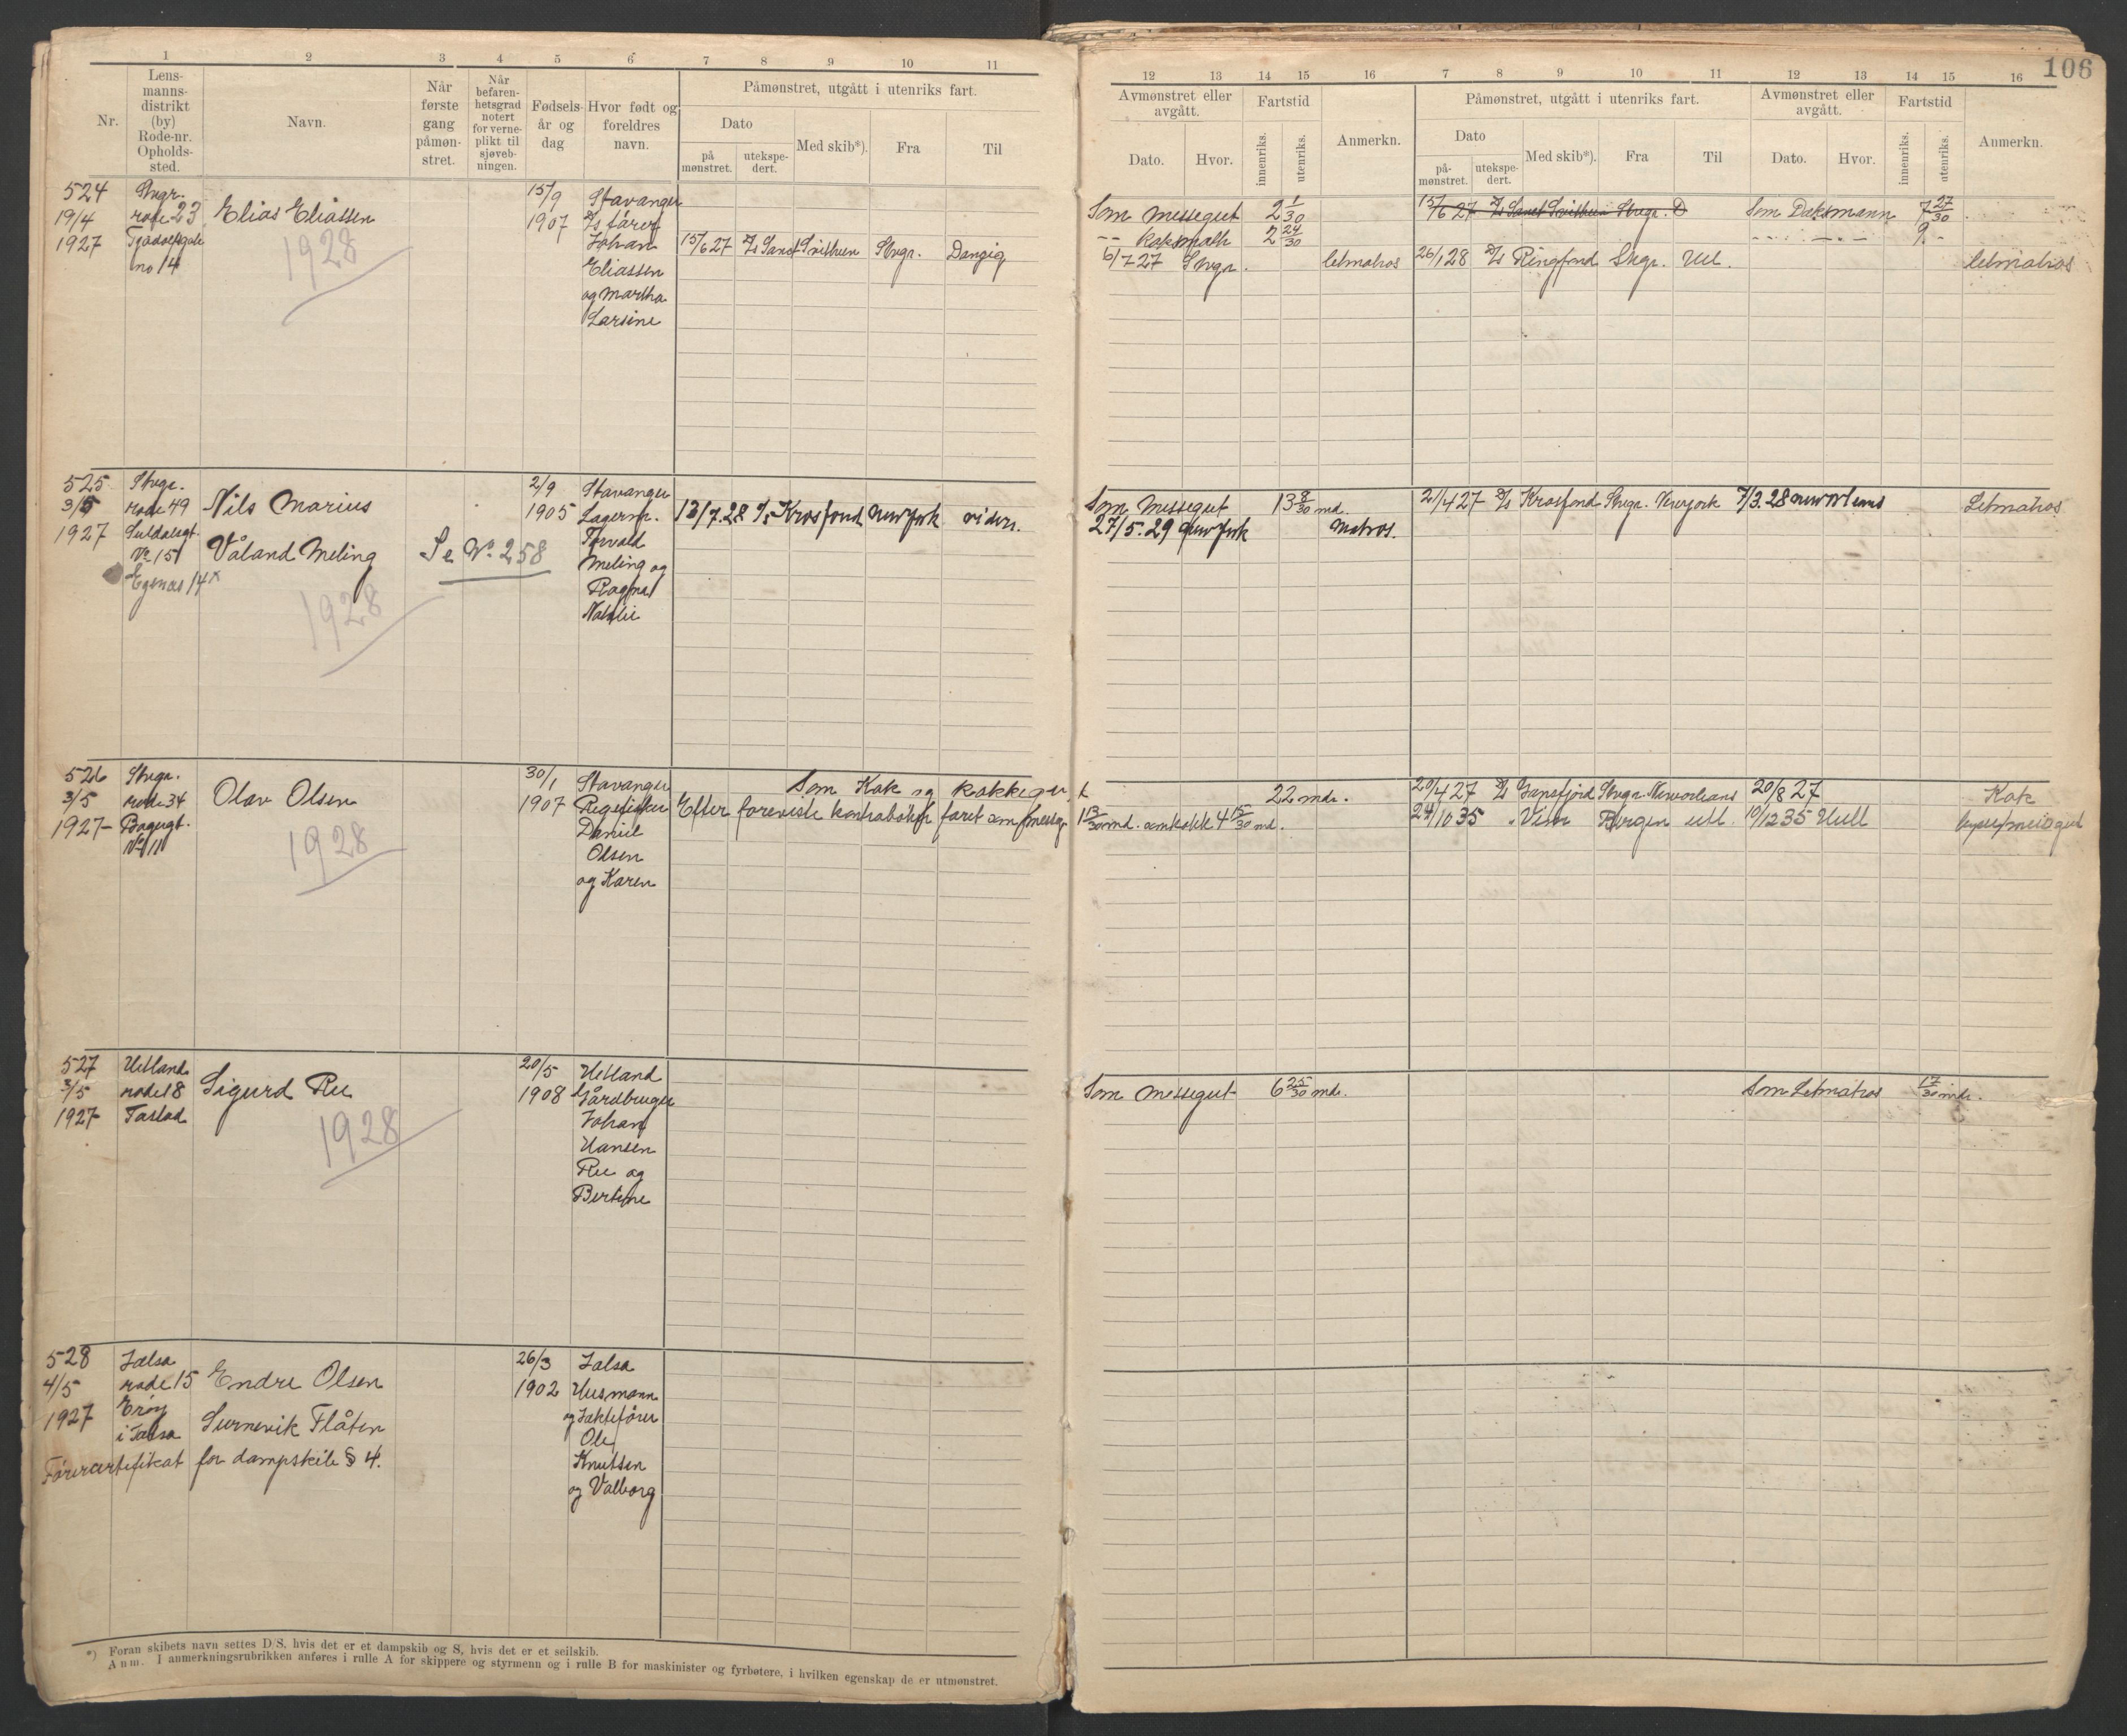 1 2 3 4 5 6 7 8 9 10 11
Nr.
Lens-
manns-
distrikt
(by)
Rode-nr.
Opholds-
sted.
Navn.
Når
første
gang
påmøn-
stret.
Når
befaren-
hetsgrad
notert
for verne-
plikt til
sjøveb-
ningen.
Fødsels-
år og
dag
Hvor født og
foreldres
navn.
Påmønstret, utgått i utenriks fart.
Dato
på
mønstret.
utekspe-
dert.
Med skib*).
Fra
Til
524 Stvgr. 15/9 Stavanger
19/4 rode 23 Elias Eliassen 1907 D/s fører
1927 Johan 15/6 27 D/s Sanct Svithun Stvgr. Danzig
no 14 1928 Eliassen
og Martha
Larsine
525 Stvgr. 2/9 Stavanger
3/5 rode 49 Nils Marius 1905 Lagerrp. 13/7.28 D/s Krosfond Newyork viders.
1927 Suldalsgt. Torvald
No 151 Våland Meling Se No 258 Meling og
Egenæs 14x Ragna
1928 Natalie
526 Stvgr. 30/1 Stavanger Som Kok og kokkegut
3/5 rode 34 Olav Olsen 1907 Efter foreviste kontrabøker faret som messeg.
1927 Daniel
No 11 1928 Olsen
og Karen
527 Hetland 20/5 Hetland
3/5 rode 18 Sigurd Ree 1908 Gårdbruger
1927 Tastad Johan
1928 Hansen
Ree og
Bertine
528 Jelsa 26/3 Jelsa
4/5 rode 15 Endre Olsen 1902 Husmann
1927 Erøy og Jaktefører
i Jelsa Surnevik Flåten Ole
Førercertifikat for dampskib § 4. Knutsen
og Valborg
*) Foran skibets navn settes D/S, hvis det er et dampskib og S, hvis det er et seilskib.
Anm. I anmerkningsrubrikken anføres i rulle A for skippere og styrmenn og i rulle B for maskinister og fyrbøtere, i hvilken egenskap de er utmønstret.
106
12 13 14 15 16 7 8 9 10 11 12 13 14 15 16
Avmønstret eller
avgått.
Dato.
Hvor.
Fartstid
innenriks.
utenriks.
Anmerkn.
Påmønstret, utgått i utenriks fart.
Dato
på-
mønstret.
utekspe-
dert.
Med skib*).
Fra
Til
Avmønstret eller
avgått.
Dato.
Hvor.
Fartstid
innenriks.
utenriks.
Anmerkn.
Som messegut 2 1/30 15/6 27 D/s Sanct Svithun Stvgr. D Som Dæksmann 7 27/30
-- Koksmath 2 24/30 9 -
6/7 27 Stvgr. letmatros 26/1 28 D/s Ringfond Stvgr. Utl. letmatros
Som messegut 13 8/30 md. 21/4 27 D/s Krosfond Stvgr. Newyork 7/3.28 neworleans Letmatros
27/5.29 Newyork Matros.
22 mdr. 20/4 27 D/s Ganefjord Stvgr. Neworleans 20/8 27 Kok
1 13/30 md. som kokk 4 15/30 md. 24/10 35 " Vim Bergen utl. 10/12 35 Hull
Som messegut 6 25/30 mdr. Som Letmatros 17/30 mdr.